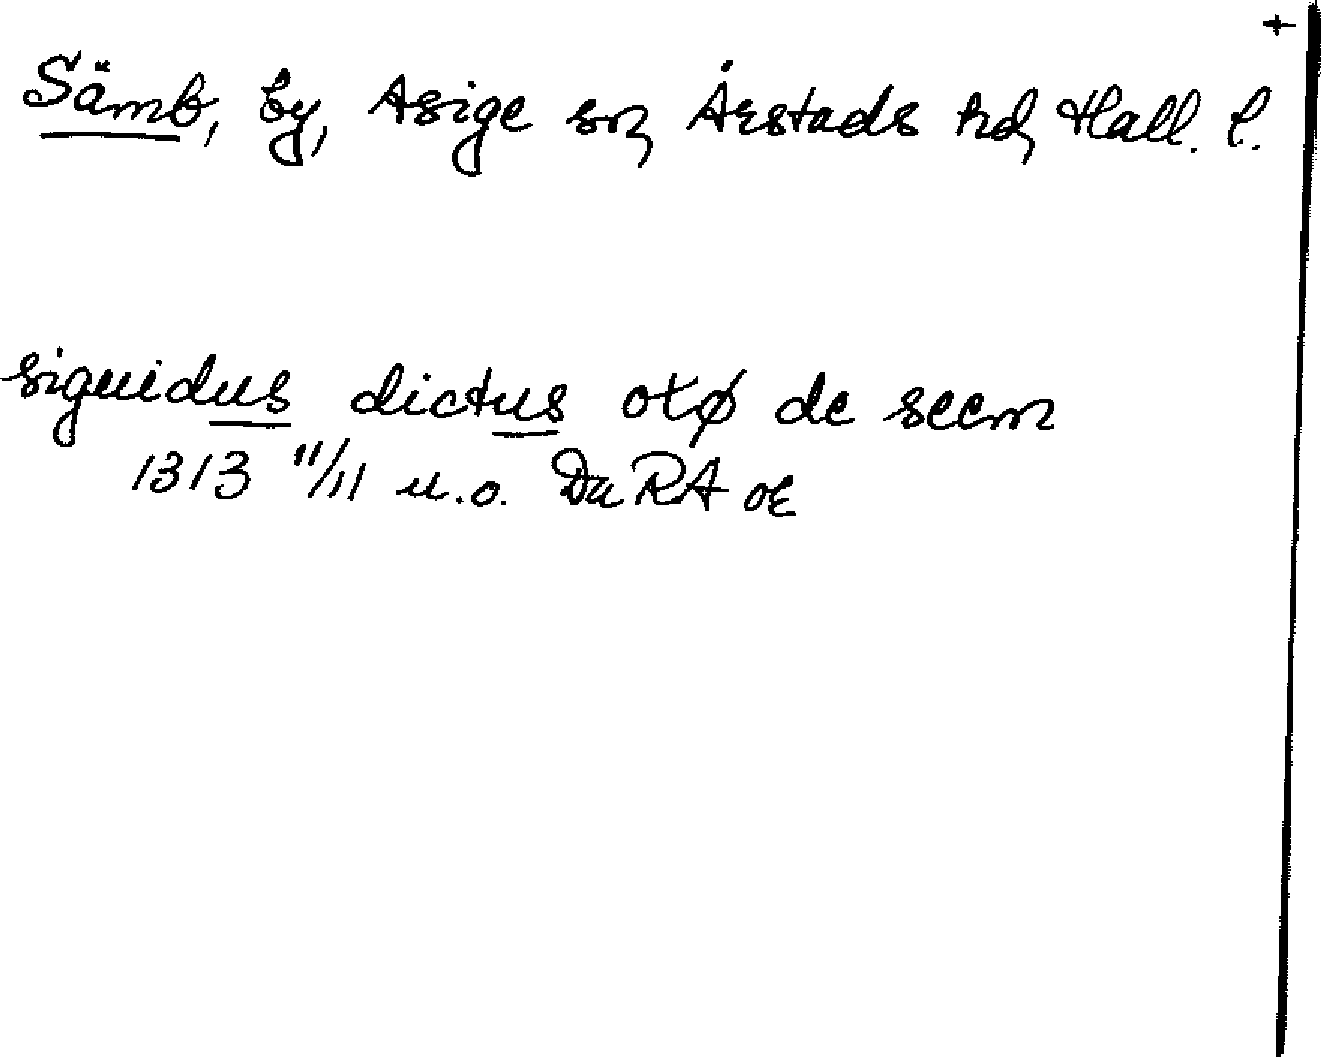 +
Sämb, by, Asige sn, Årstads hd, Hall. l.
siguidus dictus otø de seem
1313 11/11 u.o. Da RA or